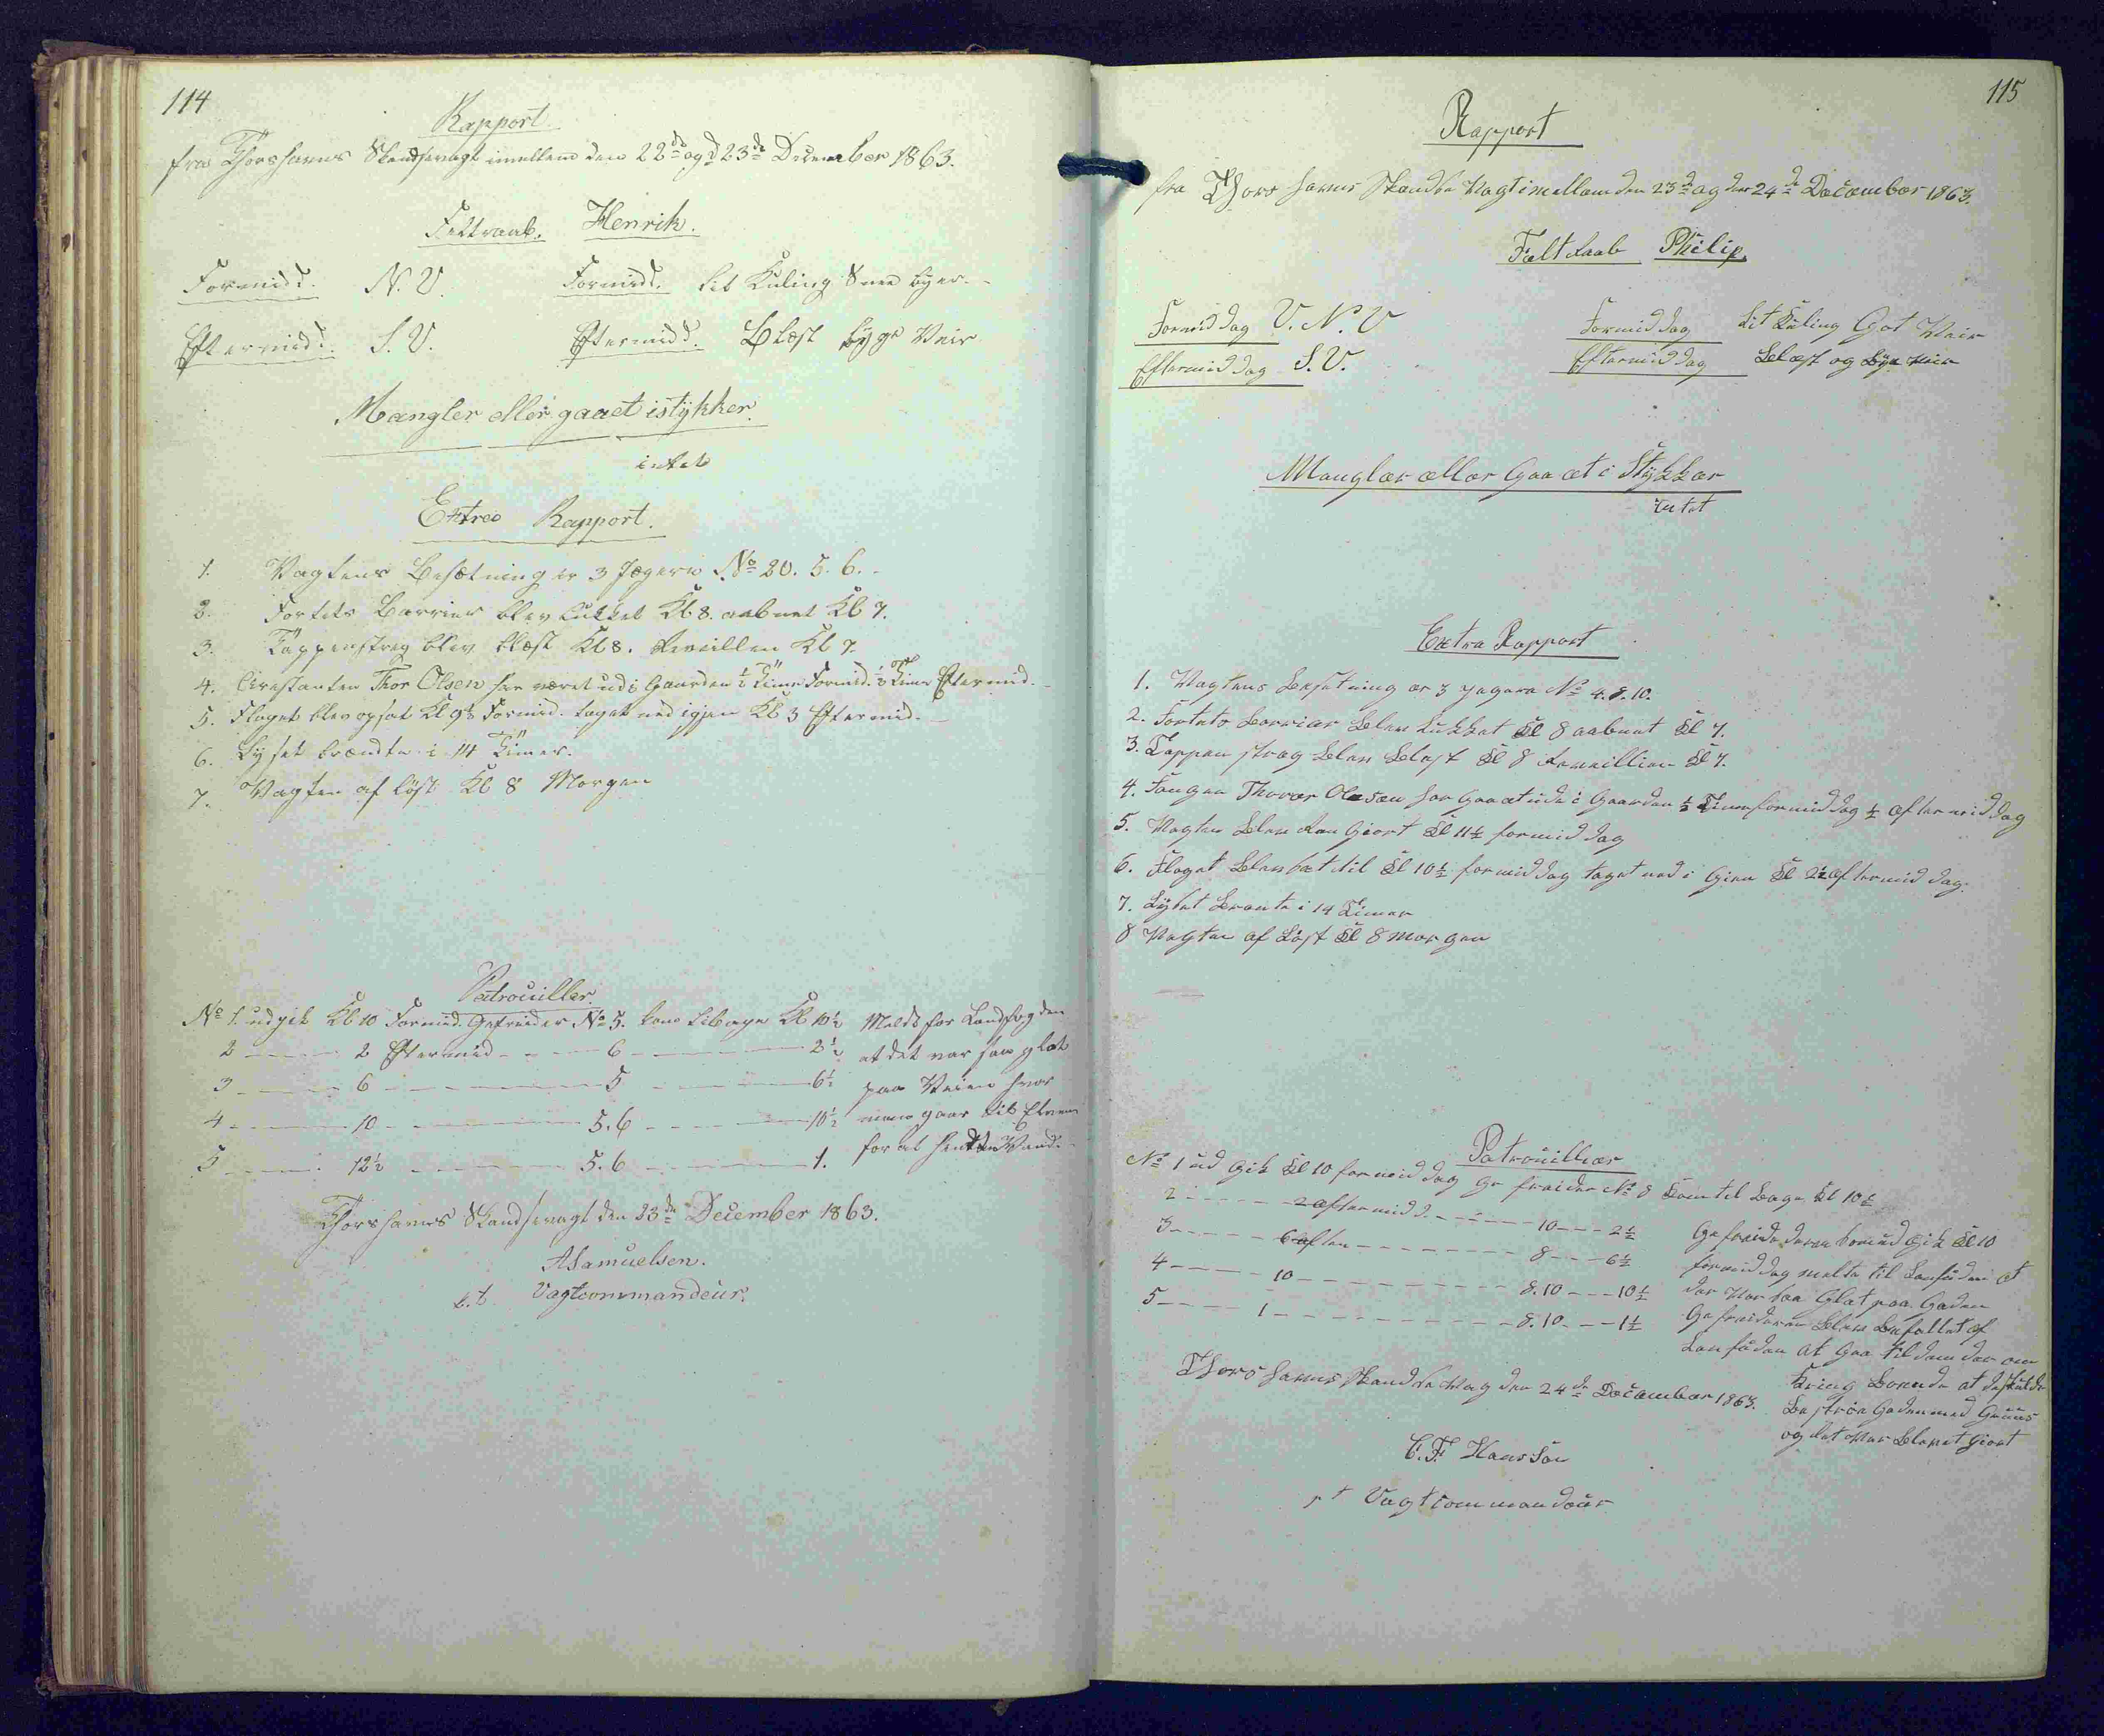 114
Rapport
fra Thorshavns Skandsevagt imellem den 22de og d 23de December 1863.
Feltraab. Henrik.
Formidd. N.V. Formidd. lit Kuling Snee byer.
Eftermidd. S.V. Eftermidd. Blæst byge Veir
Mangler eller gaaet istykker.
intet
Extra Rapport.
1. Vagtens Besætning er 3 Jægere No 20. 5. 6.
2. Fortets Barrier blev lukket Kl 8. aabnet Kl 7.
3. Tappenstreg blev blæst Kl 8. Reveillen Kl 7.
4. Arrestanten Thor Olsen har været ud i Gaarden ½ Time Formid. ½ Time Eftermid.
5. Flaget blev opsat Kl 9½ Formid. taget ned igjen Kl 3 Eftermid.
6. Lyset brændte i 14 Timer.
7. Vagten af løst Kl 8 Morgen
Patrouiller.
No 1. udgik Kl 10 Formid. Gefreider No 5. kom tilbage Kl 10½ Meldt for Landfogden
2 2 Eftermid 6 2½ at det var saa glat
3 6 5 6½ paa Veien hvor
4 10 5.6 10½ man gaar til Elven
5 12½ 5.6 1. for at hente Vand.
Thorshavns Skandsevagt den 23de December 1863.
ASamuelsen.
p.t. Vagtcommandeur.
115
Rapport
fra Thors havns Skandse Vagt imellem den 23de og den 24de December 1863.
Felt Raab Philip
Formiddag V.N.V Formiddag Lit Kuling Got Veir
Eftermiddag S.V. Eftermiddag Blæst og Bye Veir
Mangler eller Gaaet i Stykker
Intet
Extra Rapport
1. Vagtens Besetning er 3 jegere No 4. 8. 10.
2. Fortets Barrier Blev Lukket Kl 8 aabnet Kl 7.
3. Tappen streg Blev Blest Kl 8 Reveillien Kl 7.
4. Fangen Thorer Olesen har Gaaet ude i Gaarden ½ Time formiddag ½ eftermiddag
5. Vagten Blev Ren Giort Kl 11½ formiddag
6. Flaget Blev sæt til Kl 10½ formiddag taget ned i Gien Kl 2½ eftermiddag.
7. Lyset Brente i 14 Timer
8 Vagten af Løst Kl 8 Morgen
Patrouillier
No 1 ud Gik Kl 10 formiddag Gefreider No 8 Kom til Bage Kl 10½
2 2 eftermidd. 10 2½ Gefreideren som ud Gik Kl 10
3 6 aften 8 6½ formiddag melte til Lanfuden at
4 10 8.10 10½ der Var saa Glat paa Gaden
5 1 8.10 1½ Gefreideren Blev Befallet af
Lanfuden at Gaa til dem der om
Kring Boende at de skulde
Bestrøe Gaden med Gruus
og det Var Blevet Giort
Thors havns Skandse Vag den 24de December 1863.
C.F. Hanssen
pt Vagtcommandeur